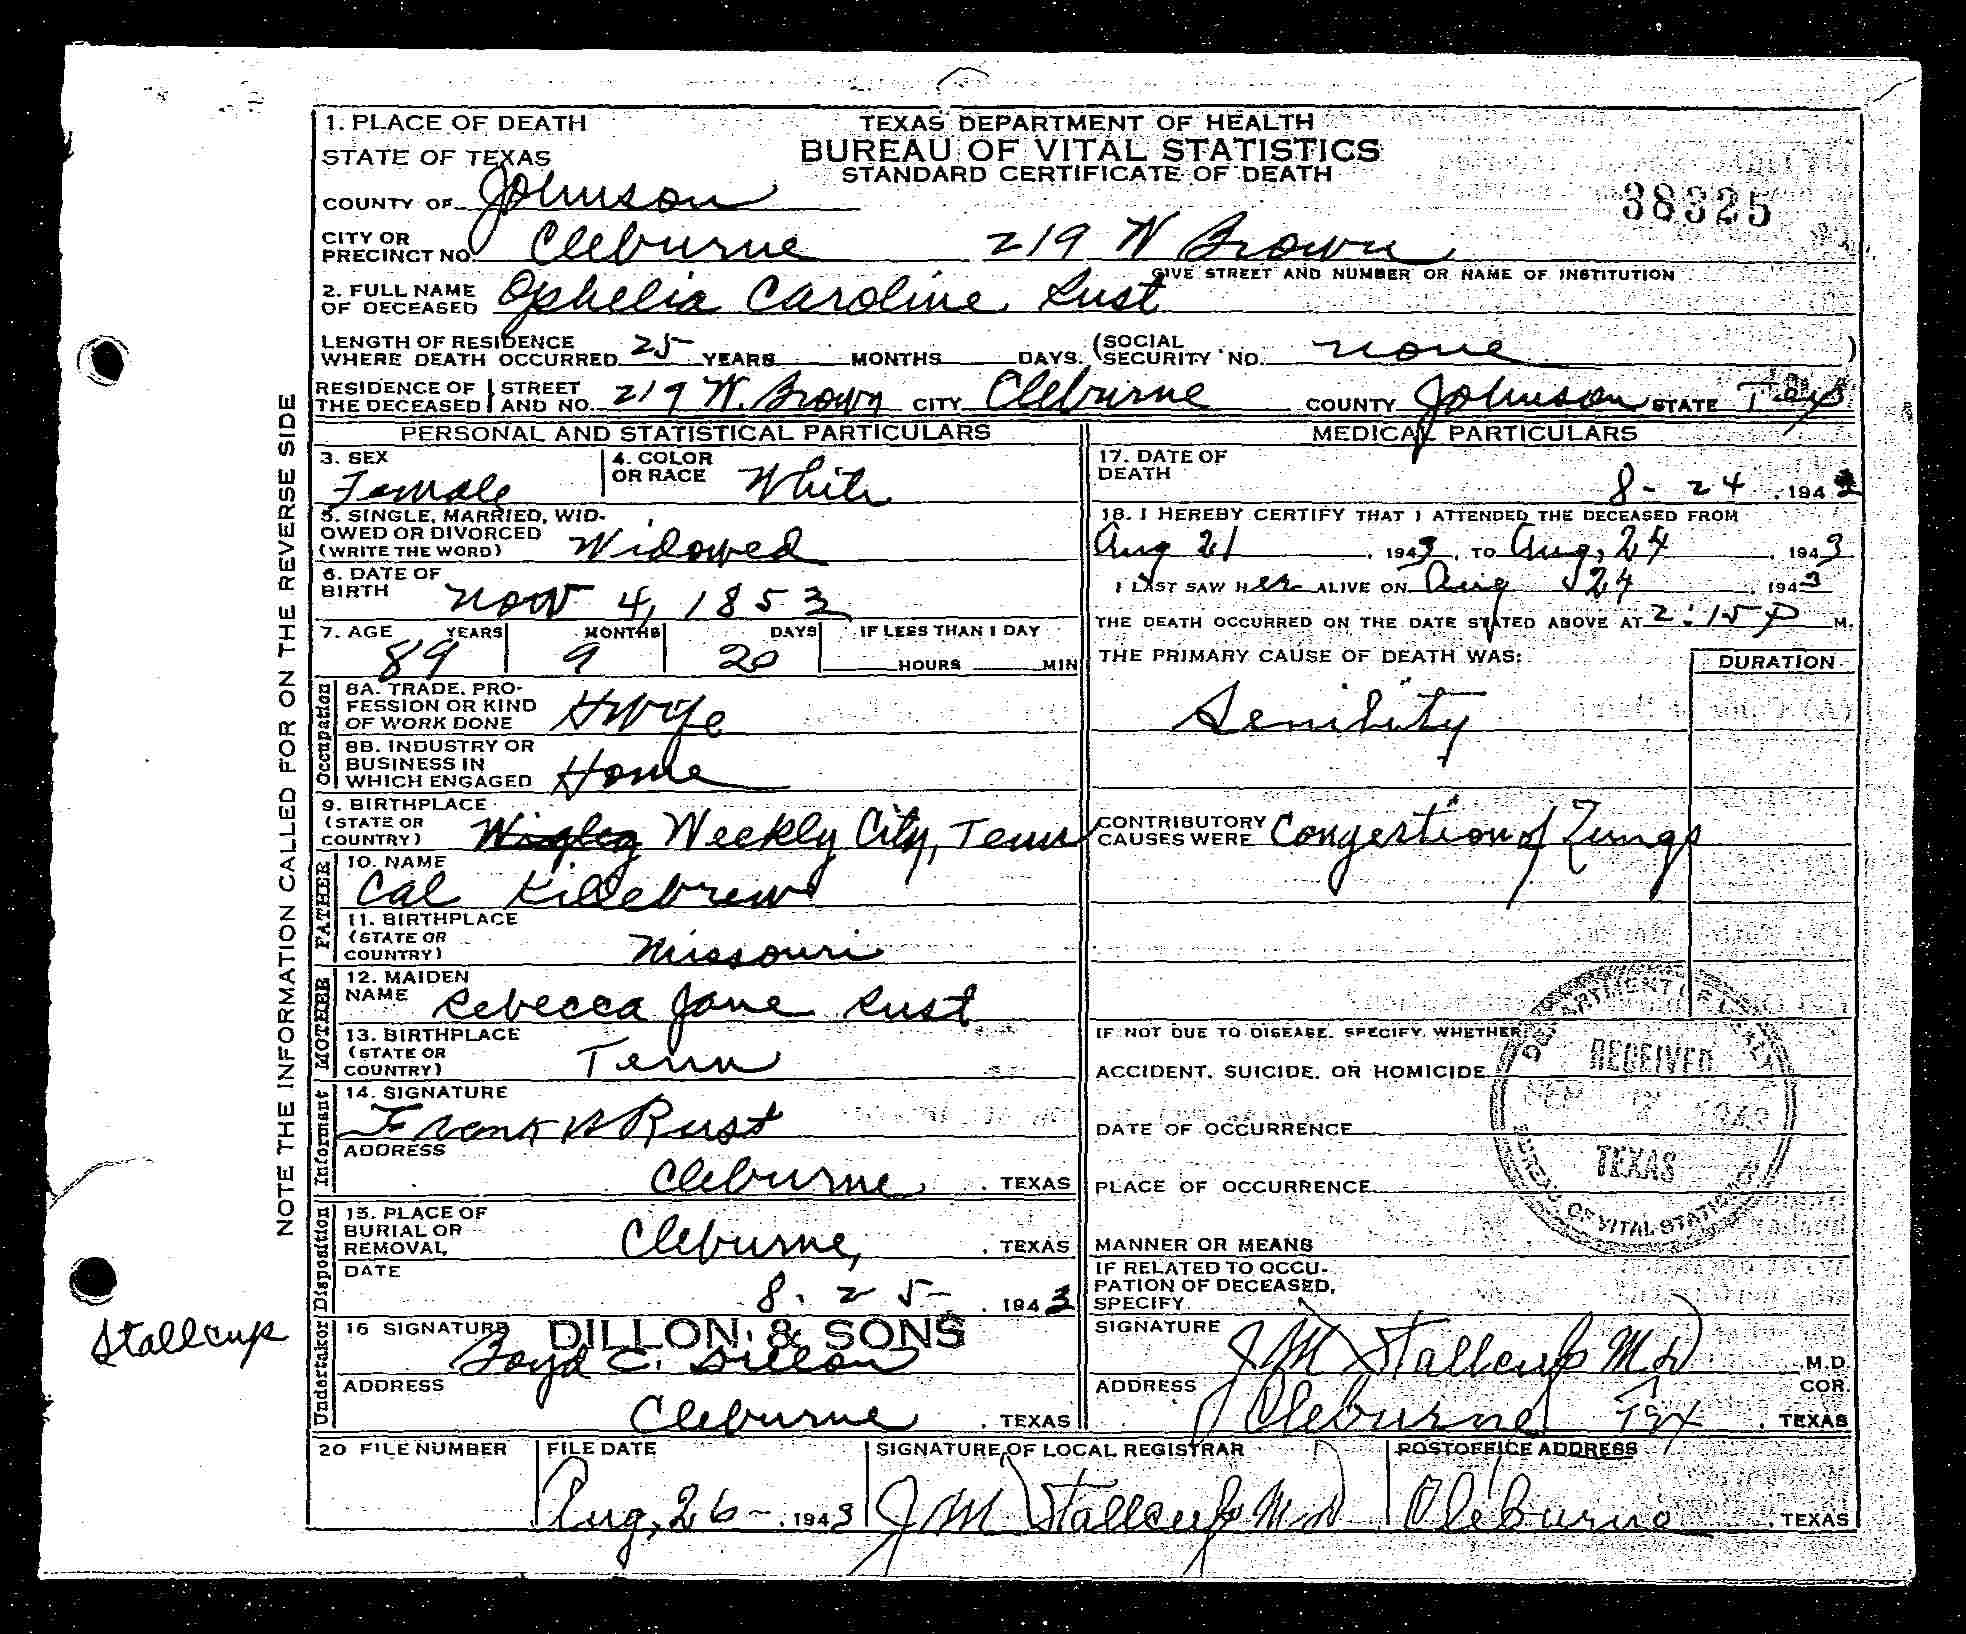 1. PLACE OF DEATH
STATE OF TEXAS
COUNTY OF Johnson
TEXAS DEPARTMENT OF HEALTH
BUREAU OF VITAL STATISTICS
STANDARD CERTIFICATE OF DEATH
38325
CITY OR PRECINCT NO. Cleburne 219 W Brown
GIVE STREET AND NUMBER OR NAME OF INSTITUTION
2. FULL NAME OF DECEASED Ophelia Caroline Rust
LENGTH OF RESIDENCE WHERE DEATH OCCURRED 25 YEARS MONTHS DAYS. (SOCIAL SECURITY NO. none )
RESIDENCE OF THE DECEASED STREET AND NO. 219 W. Brown CITY Cleburne COUNTY Johnson STATE Tex
PERSONAL AND STATISTICAL PARTICULARS
3. SEX Female
4. COLOR OR RACE White
5. SINGLE, MARRIED, WIDOWED OR DIVORCED (WRITE THE WORD) Widowed
6. DATE OF BIRTH Nov 4, 1853
7. AGE YEARS MONTHS DAYS IF LESS THAN 1 DAY
89 9 20 HOURS MIN
Occupation
8A. TRADE, PROFESSION OR KIND OF WORK DONE Hwife
8B. INDUSTRY OR BUSINESS IN WHICH ENGAGED Home
9. BIRTHPLACE (STATE OR COUNTRY) Weekly City, Tenn
FATHER
10. NAME Cal Killebrew
11. BIRTHPLACE (STATE OR COUNTRY) Missouri
MOTHER
12. MAIDEN NAME Rebecca Jane Rust
13. BIRTHPLACE (STATE OR COUNTRY) Tenn
Informant
14. SIGNATURE Frank Rust
ADDRESS Cleburne, TEXAS
Disposition
15. PLACE OF BURIAL OR REMOVAL, Cleburne, TEXAS
DATE 8.25-, 1943
Undertaker
16 SIGNATURE DILLON & SONS
Boyd C. Dillon
ADDRESS Cleburne, TEXAS
MEDICAL PARTICULARS
17. DATE OF DEATH 8-24, 1943
18. I HEREBY CERTIFY THAT I ATTENDED THE DECEASED FROM
Aug 21, 1943, TO Aug, 24, 1943
I LAST SAW Her ALIVE ON Aug 24, 1943
THE DEATH OCCURRED ON THE DATE STATED ABOVE AT 2:15 P M.
THE PRIMARY CAUSE OF DEATH WAS: DURATION
Senility
CONTRIBUTORY CAUSES WERE Congestion of Lungs
IF NOT DUE TO DISEASE, SPECIFY WHETHER
ACCIDENT, SUICIDE, OR HOMICIDE
DATE OF OCCURRENCE
PLACE OF OCCURRENCE
MANNER OR MEANS
IF RELATED TO OCCUPATION OF DECEASED, SPECIFY
SIGNATURE J M Stallcup M D M.D.
COR.
ADDRESS Cleburne, Tex, TEXAS
DEPARTMENT OF HEALTH
RECEIVED
SEP 1943
TEXAS
BUREAU OF VITAL STATISTICS
20 FILE NUMBER
FILE DATE Aug, 26-, 1943
SIGNATURE OF LOCAL REGISTRAR J M Stallcup M D
POSTOFFICE ADDRESS Cleburne, TEXAS
NOTE THE INFORMATION CALLED FOR ON THE REVERSE SIDE
Stallcup